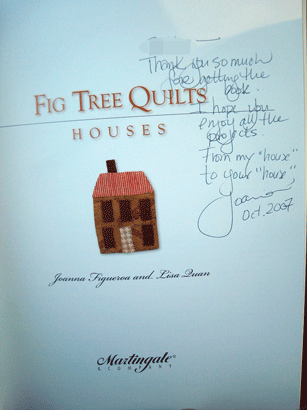 Thank you so much
for getting the
book.
I hope you
enjoy all the
projects.
From my "house"
to your "house",
Joanna
Oct. 2007
FIG TREE QUILTS
HOUSES
Joanna Figueroa and Lisa Quan
Martingale®
& COMPANY